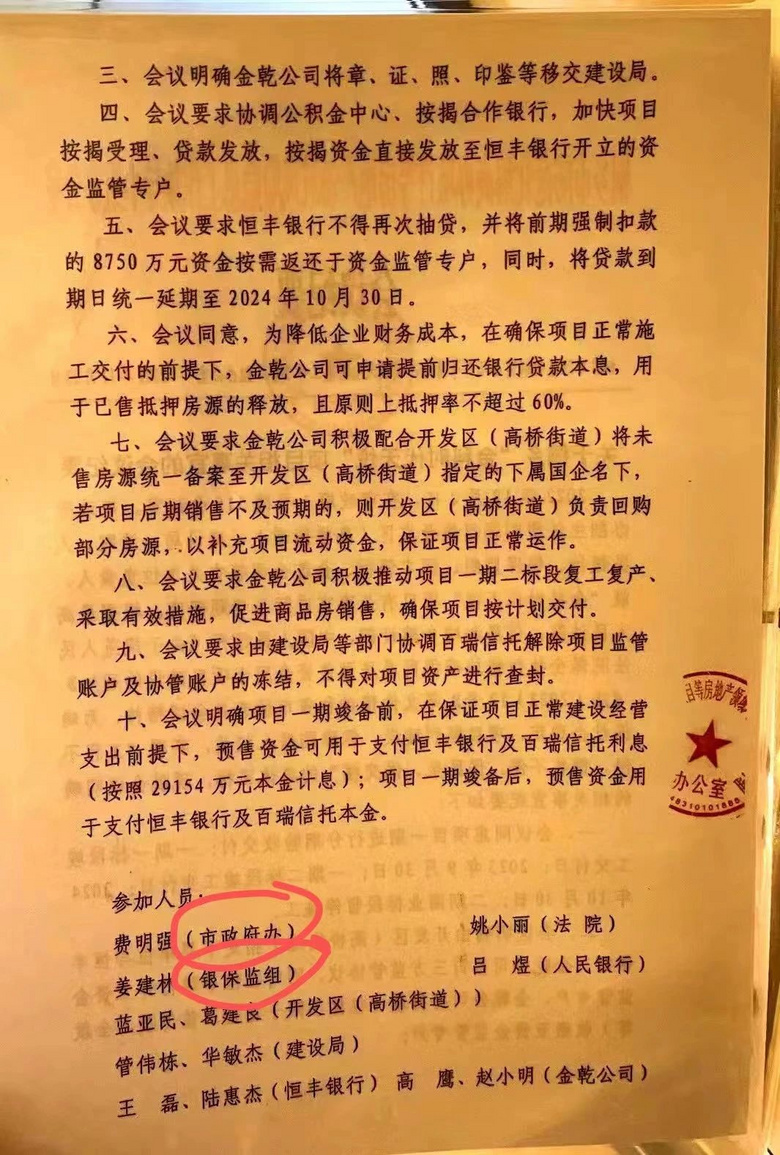 三、会议明确金乾公司将章、证、照、印鉴等移交建设局。
四、会议要求协调公积金中心、按揭合作银行，加快项目
按揭受理、贷款发放，按揭资金直接发放至恒丰银行开立的资
金监管专户。
五、会议要求恒丰银行不得再次抽贷，并将前期强制扣款
的 8750 万元资金按需返还于资金监管专户，同时，将贷款到
期日统一延期至 2024 年 10 月 30 日。
六、会议同意，为降低企业财务成本，在确保项目正常施
工交付的前提下，金乾公司可申请提前归还银行贷款本息，用
于已售抵押房源的释放，且原则上抵押率不超过 60%。
七、会议要求金乾公司积极配合开发区（高桥街道）将未
售房源统一备案至开发区（高桥街道）指定的下属国企名下，
若项目后期销售不及预期的，则开发区（高桥街道）负责回购
部分房源，以补充项目流动资金，保证项目正常运作。
八、会议要求金乾公司积极推动项目一期二标段复工复产、
采取有效措施，促进商品房销售，确保项目按计划交付。
九、会议要求由建设局等部门协调百瑞信托解除项目监管
账户及协管账户的冻结，不得对项目资产进行查封。
十、会议明确项目一期竣备前，在保证项目正常建设经营
支出前提下，预售资金可用于支付恒丰银行及百瑞信托利息
（按照 29154 万元本金计息）；项目一期竣备后，预售资金用
于支付恒丰银行及百瑞信托本金。
等房地产领
办公室
参加人员：
费明强（市政府办） 姚小丽（法 院）
姜建林（银保监组） 吕 煜（人民银行）
蓝亚民、葛建良（开发区（高桥街道））
管伟栋、华敏杰（建设局）
王 磊、陆惠杰（恒丰银行） 高 鹰、赵小明（金乾公司）